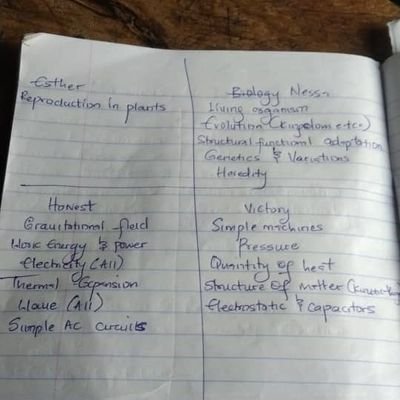 Esther
Reproduction in plants
Biology Nessa
Living organism
Evolution (Kingdom etc.)
Structural functional adaptation
Genetics & Variations
Heredity
Honest
Gravitational field
Work Energy & Power
Electricity (All)
Thermal Expansion
Wave (All)
Simple AC circuits
Victory
Simple machines
Pressure
Quantity of heat
Structure of matter
Electrostatic & Capacitors